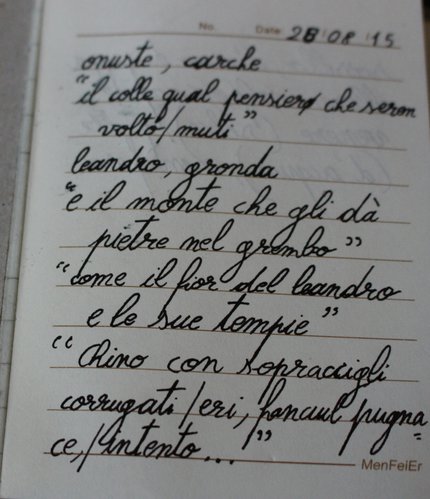 No. Date 28 08 15
onuste, carche
"il colle qual pensiero che seron
volto/muti"
leandro, gronda
"e il monte che gli dà
pietre nel grembo"
"come il fior del leandro
e le sue tempie"
"Chino con sopraccigli
corrugati/eri, fanciul pugna=
ce,/intento..."
MenFeiEr